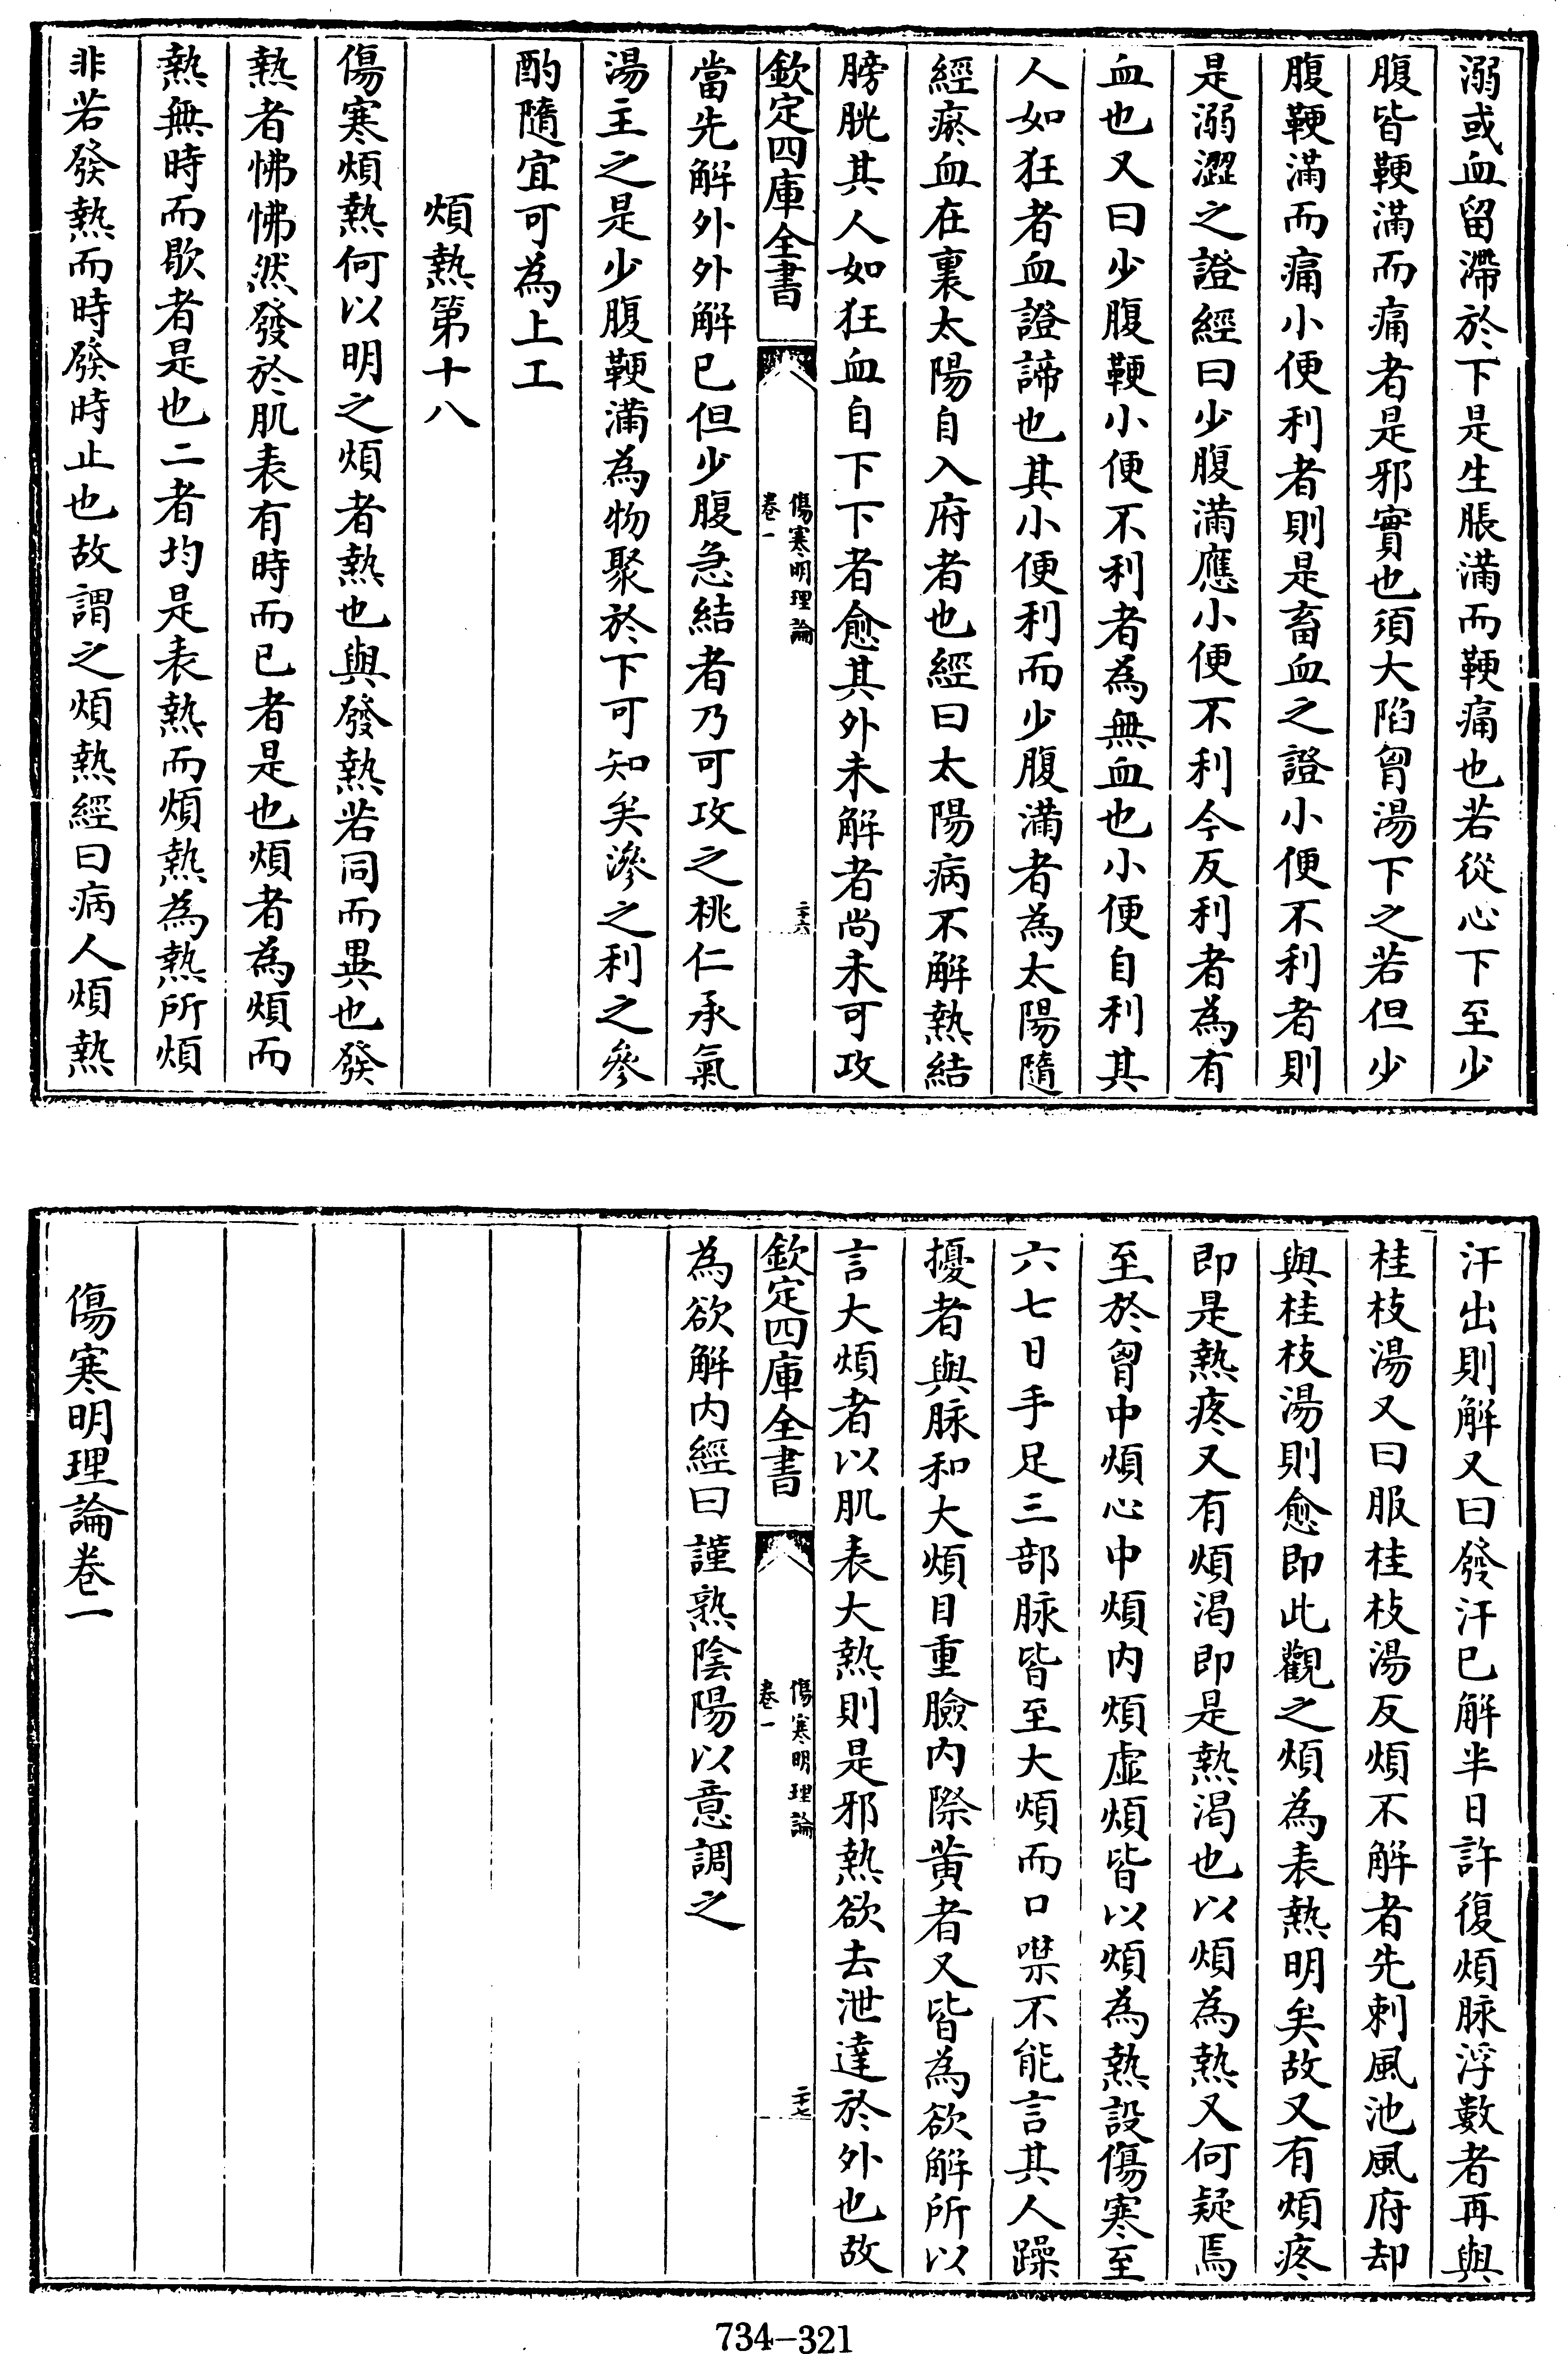 溺或血留滯於下是生脹滿而鞕痛也若從心下至少
腹皆鞕滿而痛者是邪實也須大陷胷湯下之若但少
腹鞕滿而痛小便利者則是畜血之證小便不利者則
是溺澀之證經曰少腹滿應小便不利今反利者為有
血也又曰少腹鞕小便不利者為無血也小便自利其
人如狂者血證諦也其小便利而少腹滿者為太陽隨
經瘀血在裏太陽自入府者也經曰太陽病不解熱結
膀胱其人如狂血自下下者愈其外未解者尚未可攻
欽定四庫全書
傷寒明理論
卷一
二十六
當先解外外解已但少腹急結者乃可攻之桃仁承氣
湯主之是少腹鞕滿為物聚於下可知矣滲之利之參
酌隨宜可為上工
煩熱第十八
傷寒煩熱何以明之煩者熱也與發熱若同而異也發
熱者怫怫然發於肌表有時而已者是也煩者為煩而
熱無時而歇者是也二者均是表熱而煩熱為熱所煩
非若發熱而時發時止也故謂之煩熱經曰病人煩熱
汗出則解又曰發汗已解半日許復煩脉浮數者再與
桂枝湯又曰服桂枝湯反煩不解者先刺風池風府却
與桂枝湯則愈即此觀之煩為表熱明矣故又有煩疼
即是熱疼又有煩渴即是熱渴也以煩為熱又何疑焉
至於胷中煩心中煩内煩虛煩皆以煩為熱設傷寒至
六七日手足三部脉皆至大煩而口噤不能言其人躁
擾者與脉和大煩目重臉内際黄者又皆為欲解所以
言大煩者以肌表大熱則是邪熱欲去泄達於外也故
欽定四庫全書
傷寒明理論
卷一
二十七
為欲解内經曰謹熟陰陽以意調之
傷寒明理論卷一
734-321